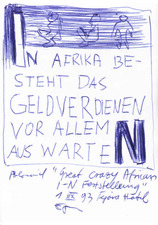 IN AFRIKA BE-
STEHT DAS
GELDVERDIENEN
VOR ALLEM
AUS WARTEN
"Great Crazy African
I-N Feststellung"
1 93 Hotel